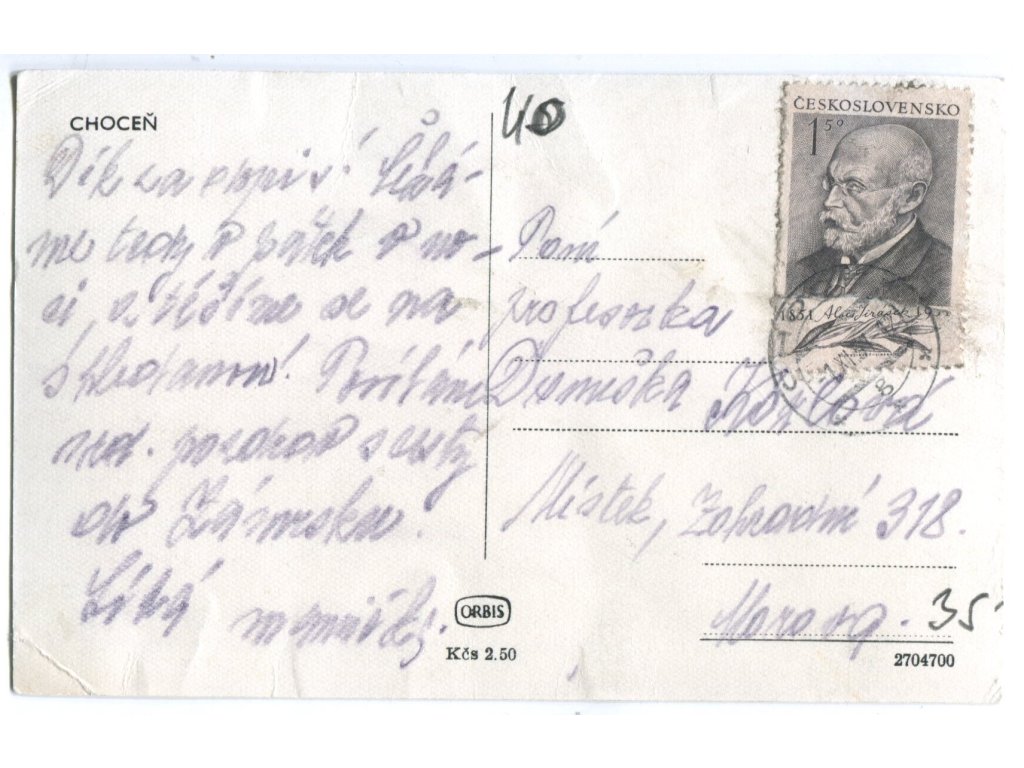 CHOCEŇ
Dík za dopis!
me tedy v pátek v no-
ci, a těšíme se na
shledanou!
pozdrav z cesty
do Zámrsku.
Líbá
40
ČESKOSLOVENSKO
1 50
1851 Alois Jirásek 19
Paní
profesorka
Danuška
Místek, Zahradní 318.
Morava.
35
ORBIS
Kčs 2.50
2704700